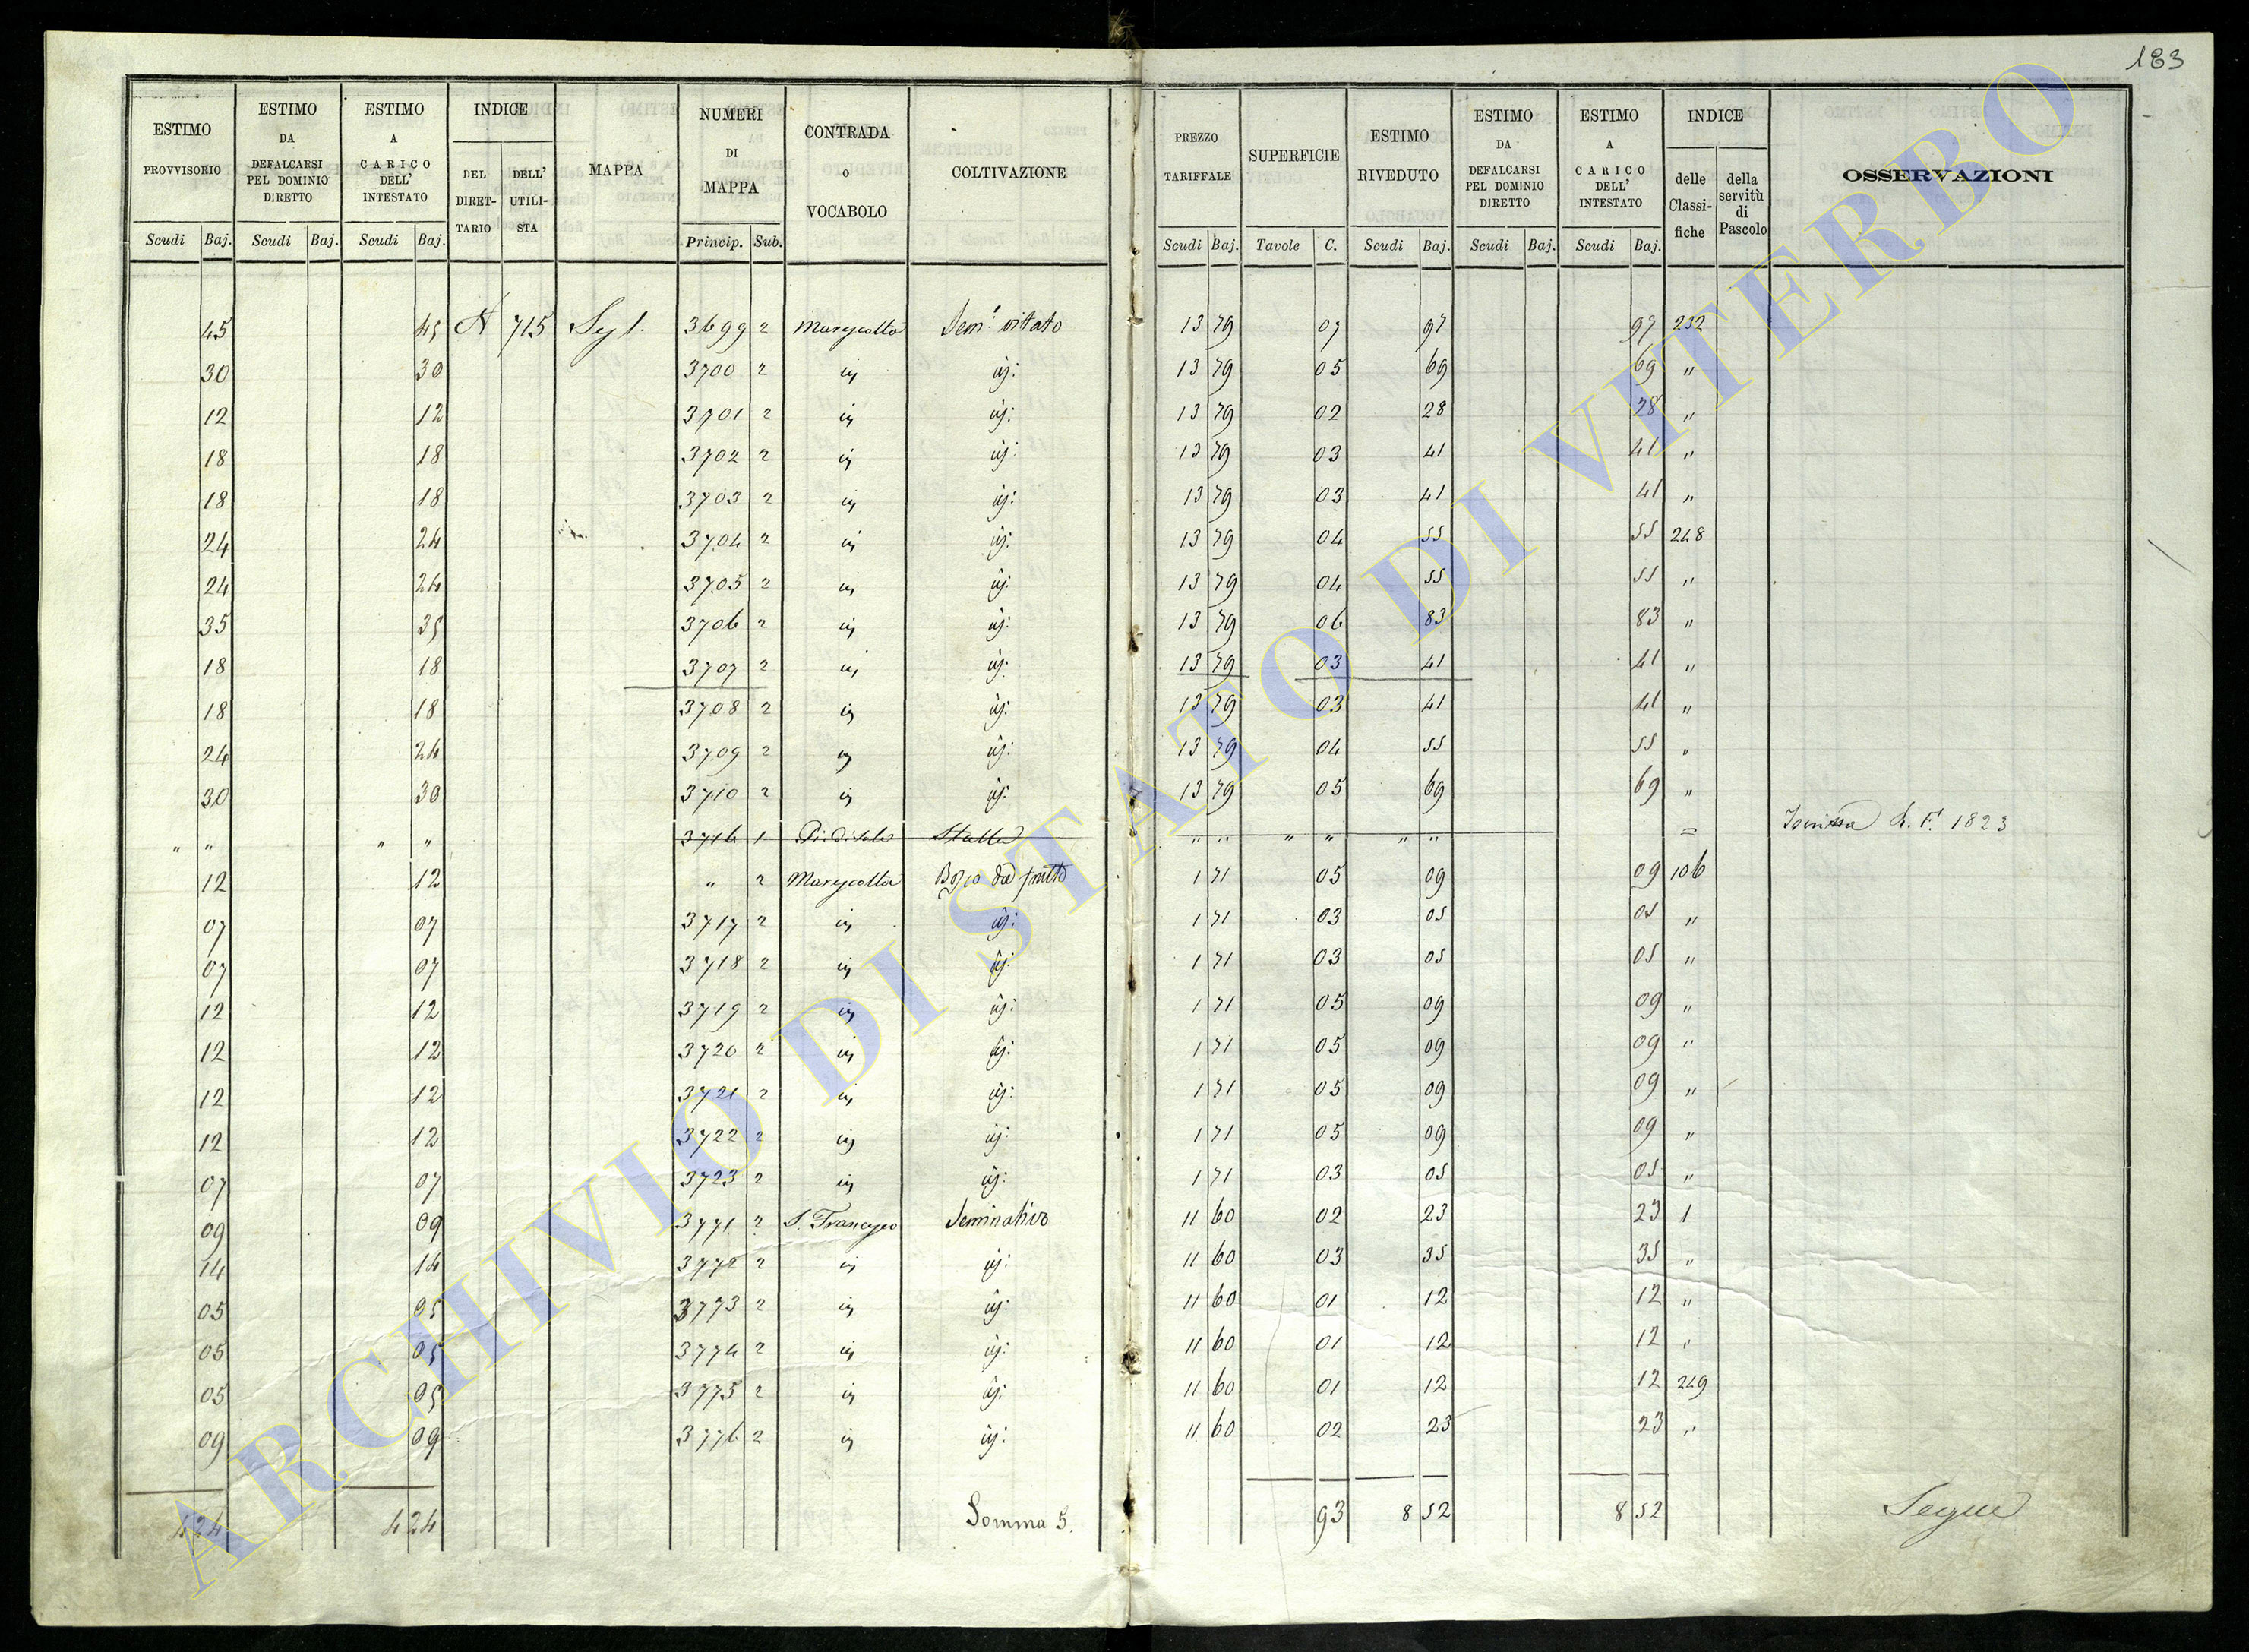 183
ESTIMO PROVVISORIO | ESTIMO DA DEFALCARSI PEL DOMINIO DIRETTO | ESTIMO A CARICO DELL' INTESTATO | INDICE | MAPPA | NUMERI DI MAPPA | CONTRADA O VOCABOLO | COLTIVAZIONE | PREZZO TARIFFALE | SUPERFICIE | ESTIMO RIVEDUTO | ESTIMO DA DEFALCARSI PEL DOMINIO DIRETTO | ESTIMO A CARICO DELL' INTESTATO | INDICE | OSSERVAZIONI
DEL DIRETTARIO | DELL' UTILISTA | delle Classifiche | della servitù di Pascolo
Scudi | Baj. | Scudi | Baj. | Scudi | Baj. | Princip. | Sub. | Scudi | Baj. | Tavole | C. | Scudi | Baj. | Scudi | Baj. | Scudi | Baj.
45 | 45 | A | 715 | 3699 | 2 | Semo vitato | 13 | 79 | 07 | 97 | 97 | 232
30 | 30 | 3700 | 2 | 13 | 79 | 05 | 69 | 69 | "
12 | 12 | 3701 | 2 | 13 | 79 | 02 | 28 | 28 | "
18 | 18 | 3702 | 2 | 13 | 79 | 03 | 41 | 41 | "
18 | 18 | 3703 | 2 | 13 | 79 | 03 | 41 | 41 | "
24 | 24 | 3704 | 2 | 13 | 79 | 04 | 55 | 55 | 248
24 | 24 | 3705 | 2 | 13 | 79 | 04 | 55 | 55 | "
35 | 35 | 3706 | 2 | 13 | 79 | 06 | 83 | 83 | "
18 | 18 | 3707 | 2 | 13 | 79 | 03 | 41 | 41 | "
18 | 18 | 3708 | 2 | 13 | 79 | 03 | 41 | 41 | "
24 | 24 | 3709 | 2 | 13 | 79 | 04 | 55 | 55 | "
30 | 30 | 3710 | 2 | 13 | 79 | 05 | 69 | 69 | "
" | " | " | " | 3716 | 1 | Stalla | " | " | " | " | " | " | 1823
12 | 12 | " | 2 | da frutto | 1 | 71 | 05 | 09 | 09 | 106
07 | 07 | 3717 | 2 | 1 | 71 | 03 | 05 | 05 | "
07 | 07 | 3718 | 2 | 1 | 71 | 03 | 05 | 05 | "
12 | 12 | 3719 | 2 | 1 | 71 | 05 | 09 | 09 | "
12 | 12 | 3720 | 2 | 1 | 71 | 05 | 09 | 09 | "
12 | 12 | 3721 | 2 | 1 | 71 | 05 | 09 | 09 | "
12 | 12 | 3722 | 2 | 1 | 71 | 05 | 09 | 09 | "
07 | 07 | 3723 | 2 | 1 | 71 | 03 | 05 | 05 | "
09 | 09 | 3771 | 2 | S. Francesco | Seminativo | 11 | 60 | 02 | 23 | 23 | 1
14 | 14 | 3772 | 2 | 11 | 60 | 03 | 35 | 35 | "
05 | 05 | 3773 | 2 | 11 | 60 | 01 | 12 | 12 | "
05 | 05 | 3774 | 2 | 11 | 60 | 01 | 12 | 12 | "
05 | 05 | 3775 | 2 | 11 | 60 | 01 | 12 | 12 | 249
09 | 09 | 3776 | 2 | 11 | 60 | 02 | 23 | 23 | "
4 | 24 | 4 | 24 | Somma S. | 93 | 8 | 52 | 8 | 52 | Segue
ARCHIVIO DI STATO DI VITERBO